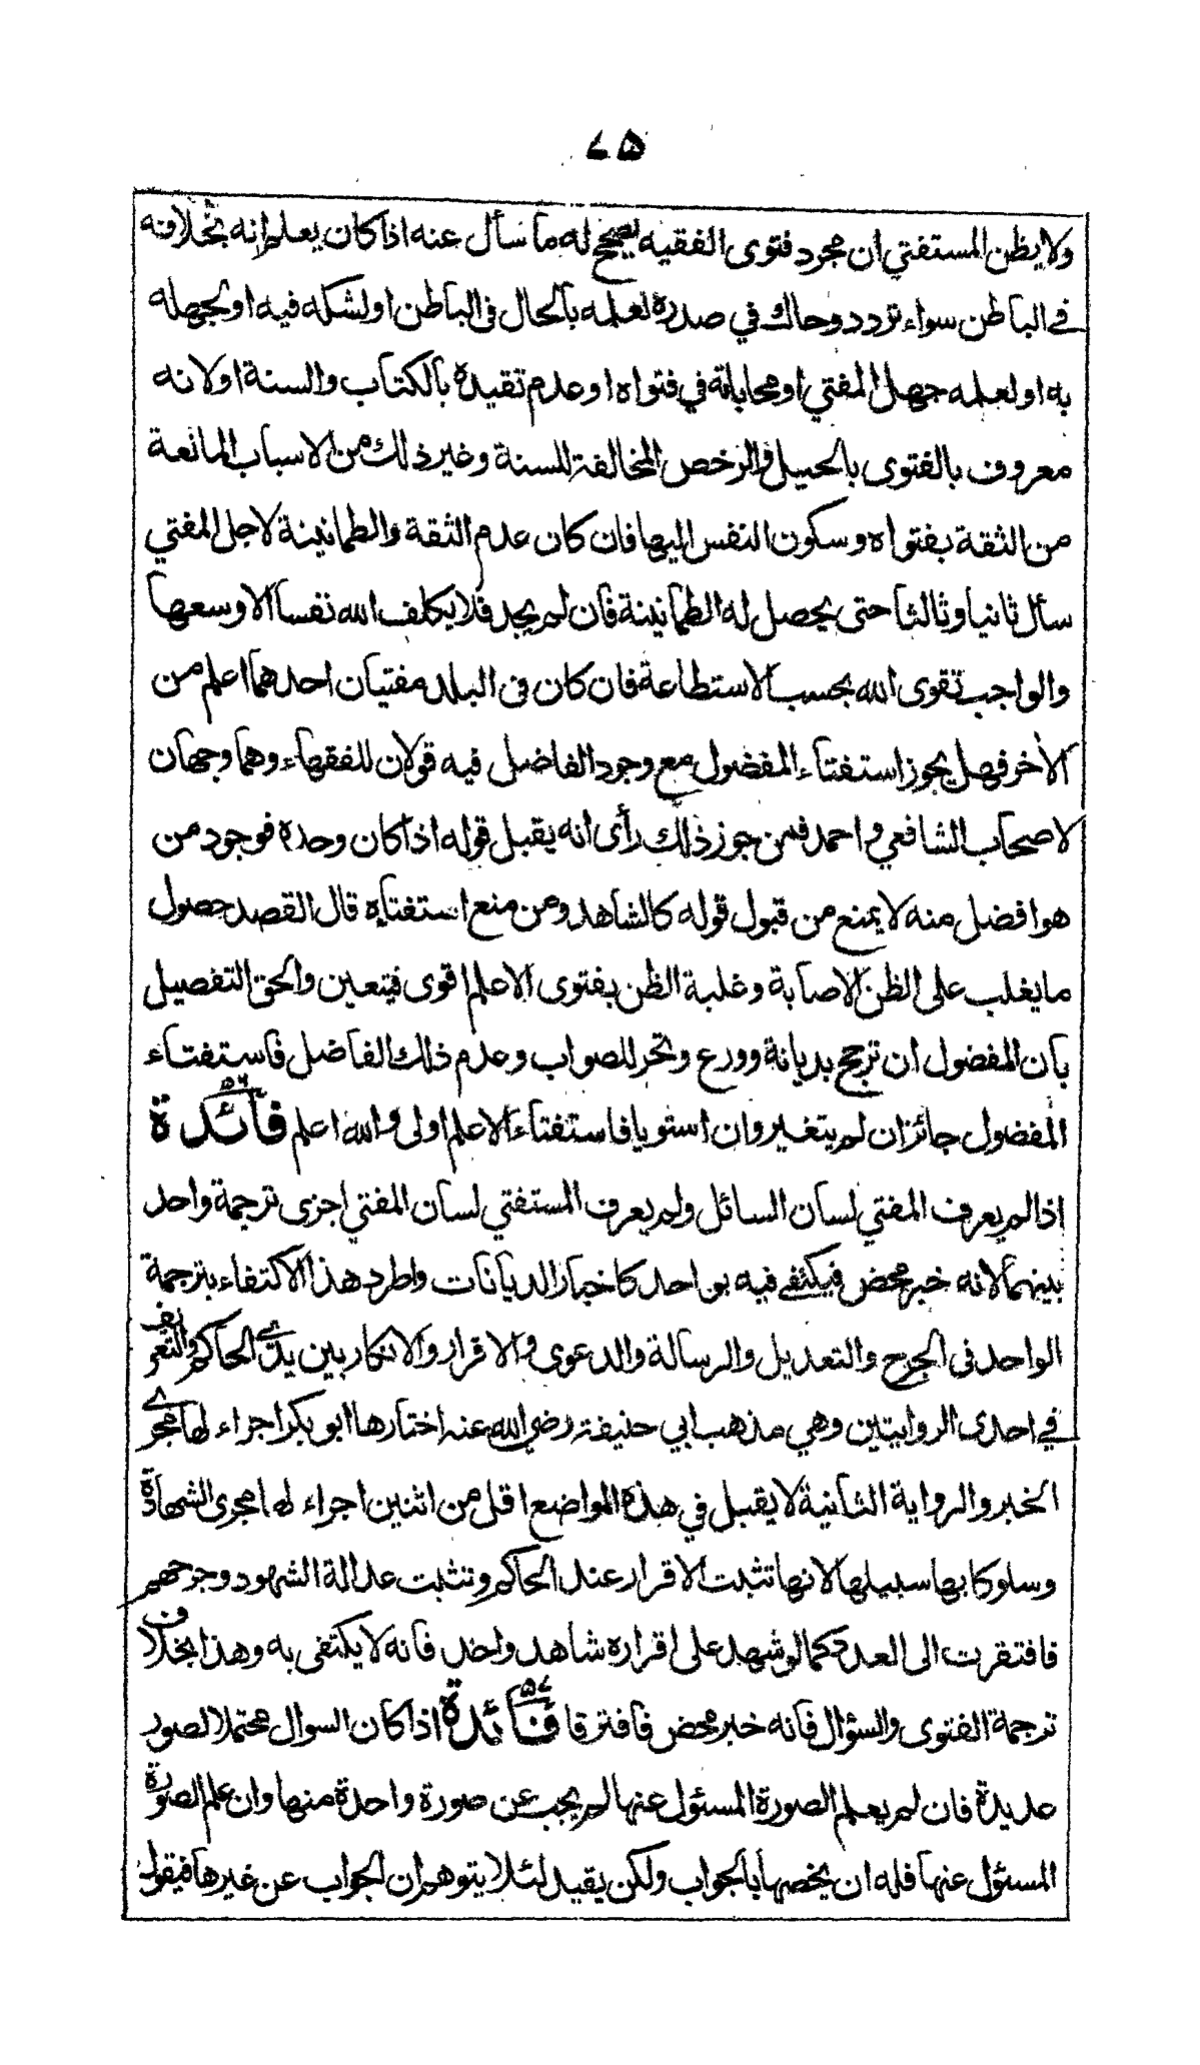 ٧٥
ولا يظن المستفتي ان مجرد فتوى الفقيه يصحح له ما سأل عنه اذا كان يعلم انه بخلافه
في الباطن سواء تردد وحاك في صدره لعلمه بالحال في الباطن او لشكه فيه او لجهله
به او لعلمه جهل المفتي او محاباته في فتواه او عدم تقيده بالكتاب والسنة او لانه
معروف بالفتوى بالحيل والرخص المخالفة للسنة وغير ذلك من الاسباب المانعة
من الثقة بفتواه وسكون النفس اليها فان كان عدم الثقة والطمانينة لاجل المفتي
سأل ثانيا وثالثا حتى يحصل له الطمانينة فان لم يجد فلا يكلف الله نفسا الا وسعها
والواجب تقوى الله بحسب الاستطاعة فان كان في البلد مفتيان احدهما اعلم من
الأخر فهل يجوز استفتاء المفضول مع وجود الفاضل فيه قولان للفقهاء وهما وجهان
لاصحاب الشافعي واحمد فمن جوز ذلك رأى انه يقبل قوله اذا كان وحده فوجود من
هو افضل منه لا يمنع من قبول قوله كالشاهد ومن منع استفتايه قال القصد حصول
ما يغلب على الظن الاصابة وغلبة الظن بفتوى الاعلم اقوى فيتعين والحق التفصيل
بان المفضول ان ترجح بديانة وورع وتحر للصواب وعدم ذلك الفاضل فاستفتاء
المفضول جائز ان لم يتغير وان استويا فاستفتاء الاعلم اولى والله اعلم فائدة ٥٦
اذا لم يعرف المفتي لسان السائل ولم يعرف المستفتي لسان المفتي اجزى ترجمة واحد
بينهما لانه خبر محض فيكتفى فيه بواحد كاخبار الديانات واطرد هذا الاكتفاء بترجمة
الواحد في الجرح والتعديل والرسالة والدعوى والاقرار والانكار بين يدي الحاكم والتعريف
في احدى الروايتين وهي مذهب ابي حنيفة رضي الله عنه اختارها ابو بكر اجراء لها مجرى
الخبر والرواية الثانية لا يقبل في هذه المواضع اقل من اثنين اجراء لها مجرى الشهادة
وسلوكا بها سبيلها لانها تثبت الاقرار عند الحاكم وتثبت عدالة الشهود وجرحهم
فافتقرت الى العدد كما لو شهد على اقراره شاهد واحد فانه لا يكتفى به وهذا بخلاف
ترجمة الفتوى والسؤال فانه خبر محض فافترقا فائدة ٥٧ اذا كان السوال محتملا لصور
عديدة فان لم يعلم الصورة المسئول عنها لم يجب عن صورة واحدة منها وان علم الصورة
المسئول عنها فله ان يخصها بالجواب ولكن يقيد لئلا يتوهم ان الجواب عن غيرها فيقول